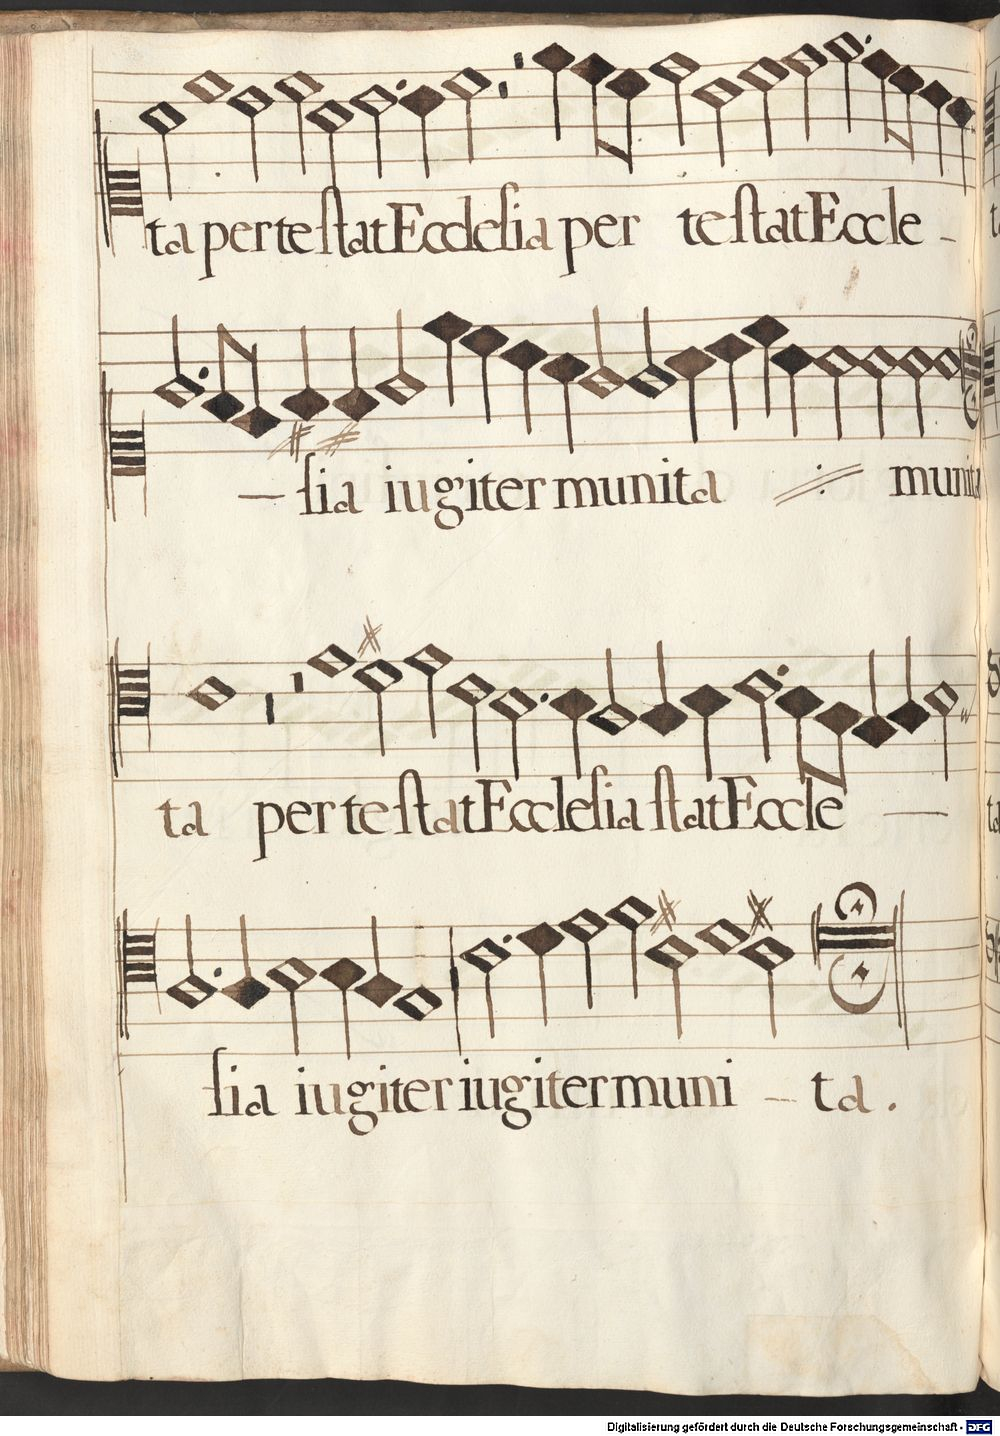 ta per te stat Ecclesia per te stat Eccle -
— sia iugiter munita // munita
ta per te stat Ecclesia stat Eccle —
sia iugiter iugiter muni - ta .
Digitalisierung gefördert durch die Deutsche Forschungsgemeinschaft - DFG